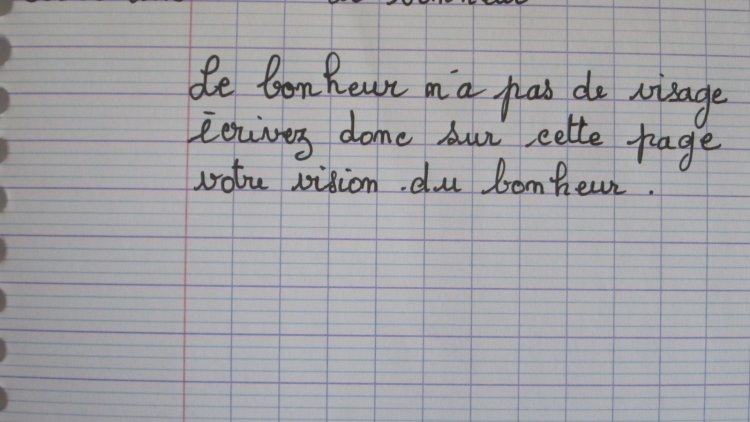 Le bonheur n'a pas de visage
écrivez donc sur cette page
votre vision du bonheur.